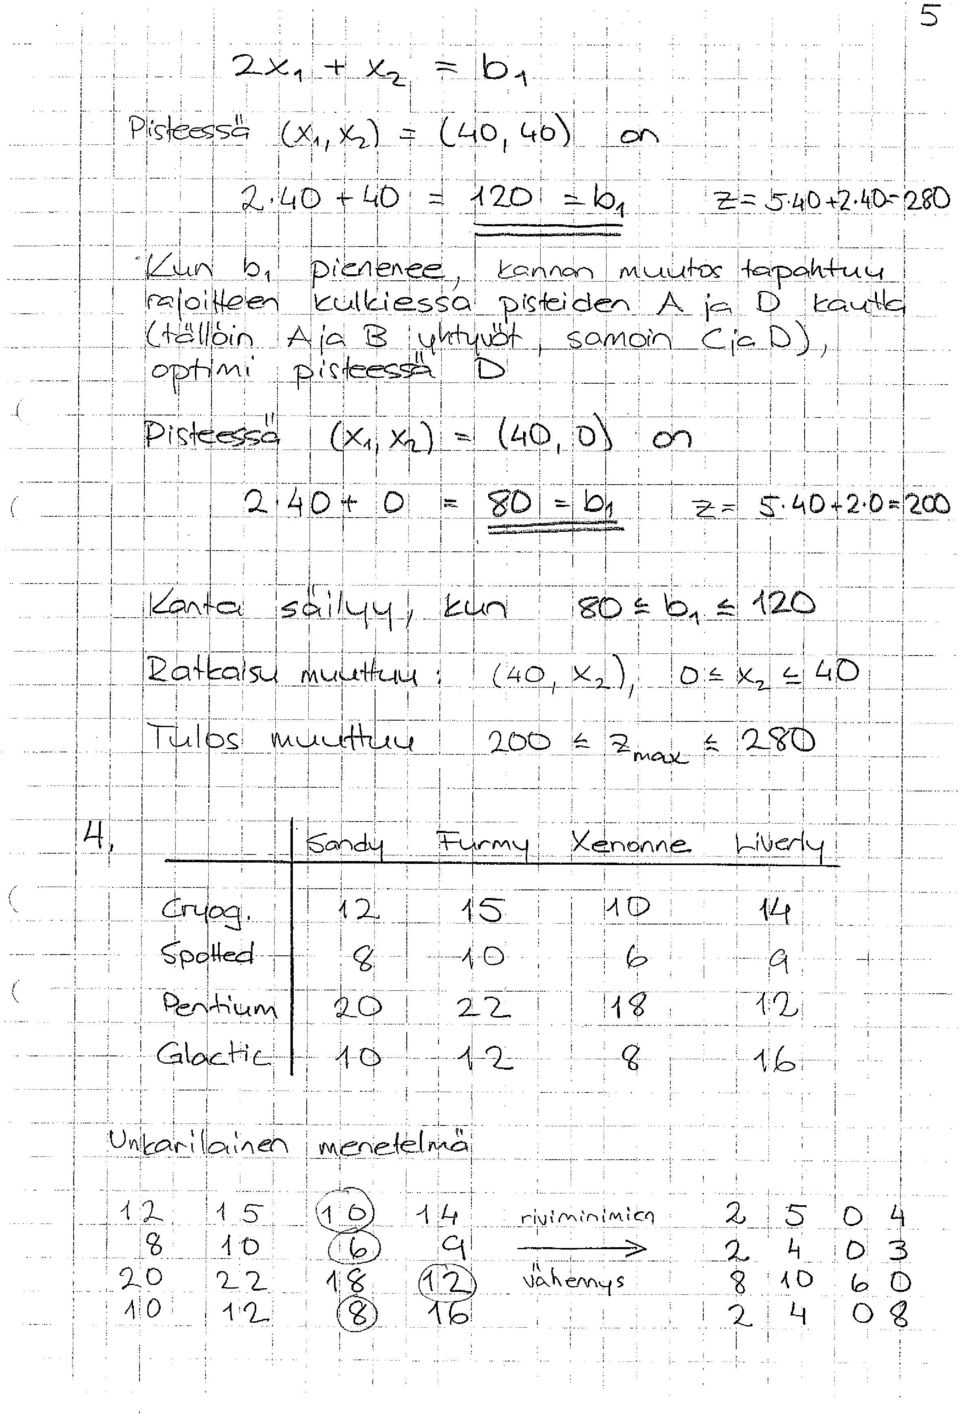 5
2x₁ + x₂ = b₁
Pisteessä (x₁, x₂) = (40, 40) on
2·40 + 40 = 120 = b₁ z = 5·40+2·40=280
Kun b₁ pienenee, kannan muutos tapahtuu
rajoitteen kulkiessa pisteiden A ja D kautta
(tällöin A ja B yhtyvät, samoin C ja D),
optimi pisteessä D
Pisteessä (x₁, x₂) = (40, 0) on
2·40 + 0 = 80 = b₁ z = 5·40+2·0=200
Kanta säilyy, kun 80 ≤ b₁ ≤ 120
Ratkaisu muuttuu: (40, x₂), 0 ≤ x₂ ≤ 40
Tulos muuttuu 200 ≤ z_max ≤ 280
4. Sandy Furmy Xenonne Liverly
Cryog. 12 15 10 14
Spotted 8 10 6 9
Pentium 20 22 18 12
Glactic 10 12 8 16
Unkarilainen menetelmä
12 15 10 14 riviminimien 2 5 0 4
8 10 6 9 → 2 4 0 3
20 22 18 12 vähennys 8 10 6 0
10 12 8 16 2 4 0 8